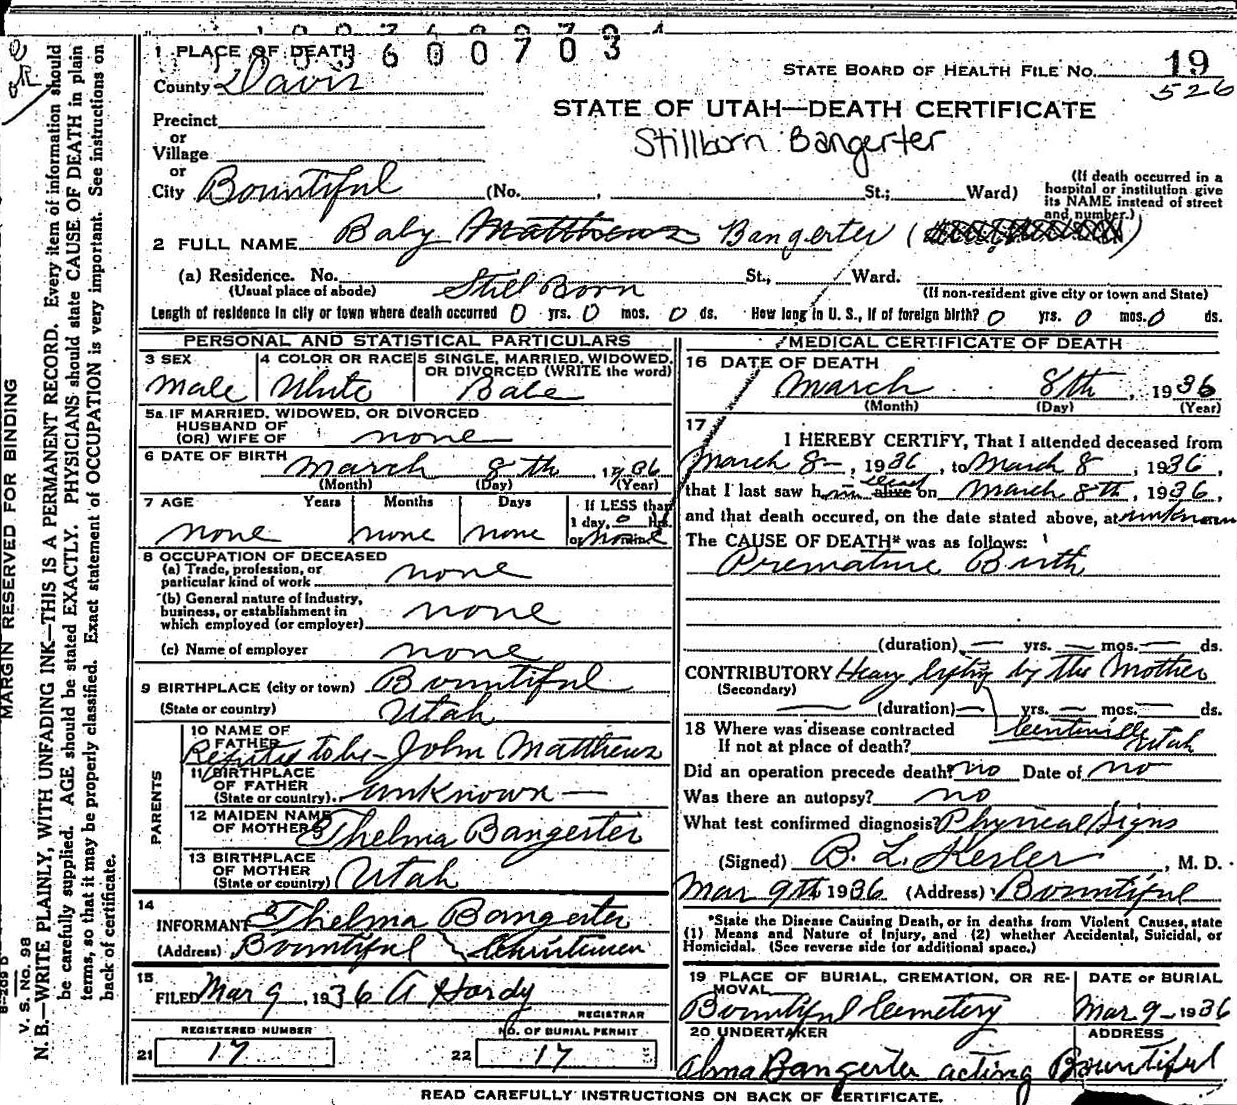 1 PLACE OF DEATH
3 6 0 0 7 0 3
STATE BOARD OF HEALTH FILE NO. 19
526
County Davis
STATE OF UTAH—DEATH CERTIFICATE
Precinct
Stillborn Bangerter
or
Village
or
City Bountiful (No. , St.; Ward)
(If death occurred in a hospital or institution give its NAME instead of street and number.)
2 FULL NAME Baby Matthews Bangerter
(a) Residence. No. St., Ward.
(Usual place of abode) Still Born (If non-resident give city or town and State)
Length of residence in city or town where death occurred 0 yrs. 0 mos. 0 ds. How long in U. S., if of foreign birth? 0 yrs. 0 mos. 0 ds.
PERSONAL AND STATISTICAL PARTICULARS
3 SEX
Male
4 COLOR OR RACE
White
5 SINGLE, MARRIED, WIDOWED,
OR DIVORCED (WRITE the word)
5a IF MARRIED, WIDOWED, OR DIVORCED
HUSBAND OF
(OR) WIFE OF none
6 DATE OF BIRTH
March 8th, 1936
(Month) (Day) (Year)
7 AGE Years Months Days If LESS than
1 day, 0 hrs.
none none none or
8 OCCUPATION OF DECEASED
(a) Trade, profession, or
particular kind of work none
(b) General nature of industry,
business, or establishment in
which employed (or employer) none
(c) Name of employer none
9 BIRTHPLACE (city or town) Bountiful
(State or country) Utah
PARENTS
10 NAME OF
FATHER
Reputed to be - John Matthews
11 BIRTHPLACE
OF FATHER
(State or country) unknown —
12 MAIDEN NAME
OF MOTHER Thelma Bangerter
13 BIRTHPLACE
OF MOTHER
(State or country) Utah
14
INFORMANT Thelma Bangerter
(Address) Bountiful Christensen
15
FILED Mar 9, 1936 A Hardy
REGISTRAR
REGISTERED NUMBER NO. OF BURIAL PERMIT
21 17 22 17
MEDICAL CERTIFICATE OF DEATH
16 DATE OF DEATH
March 8th, 1936
(Month) (Day) (Year)
17
I HEREBY CERTIFY, That I attended deceased from
March 8 -, 1936, to March 8, 1936,
that I last saw him alive dead on March 8th, 1936,
and that death occured, on the date stated above, at unknown
The CAUSE OF DEATH* was as follows:
Premature Birth
(duration) — yrs. — mos. — ds.
CONTRIBUTORY Heavy lifting by the Mother
(Secondary)
(duration) — yrs. — mos. — ds.
18 Where was disease contracted
If not at place of death? Centerville Utah
Did an operation precede death? no Date of no
Was there an autopsy? no
What test confirmed diagnosis? Physical Signs
(Signed) B. L. Kesler, M. D.
Mar 9th 1936 (Address) Bountiful
*State the Disease Causing Death, or in deaths from Violent Causes, state
(1) Means and Nature of Injury, and (2) whether Accidental, Suicidal, or
Homicidal. (See reverse side for additional space.)
19 PLACE OF BURIAL, CREMATION, OR RE-
MOVAL
Bountiful Cemetery
DATE OF BURIAL
Mar 9 - 1936
20 UNDERTAKER ADDRESS
Alma Bangerter acting Bountiful
READ CAREFULLY INSTRUCTIONS ON BACK OF CERTIFICATE.
MARGIN RESERVED FOR BINDING
V. S. No. 98
N. B.—WRITE PLAINLY, WITH UNFADING INK—THIS IS A PERMANENT RECORD. Every item of information should
be carefully supplied. AGE should be stated EXACTLY. PHYSICIANS should state CAUSE OF DEATH in plain
terms, so that it may be properly classified. Exact statement of OCCUPATION is very important. See instructions on
back of certificate.